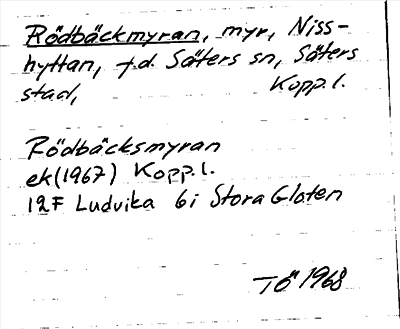 Rödbäckmyran, myr, Niss-
hyttan, f.d. Säters sn, Säters
stad, Kopp. l.
Rödbäcksmyran
ek (1967) Kopp. l.
12F Ludvika 6i Stora Gloten
TÖ 1968